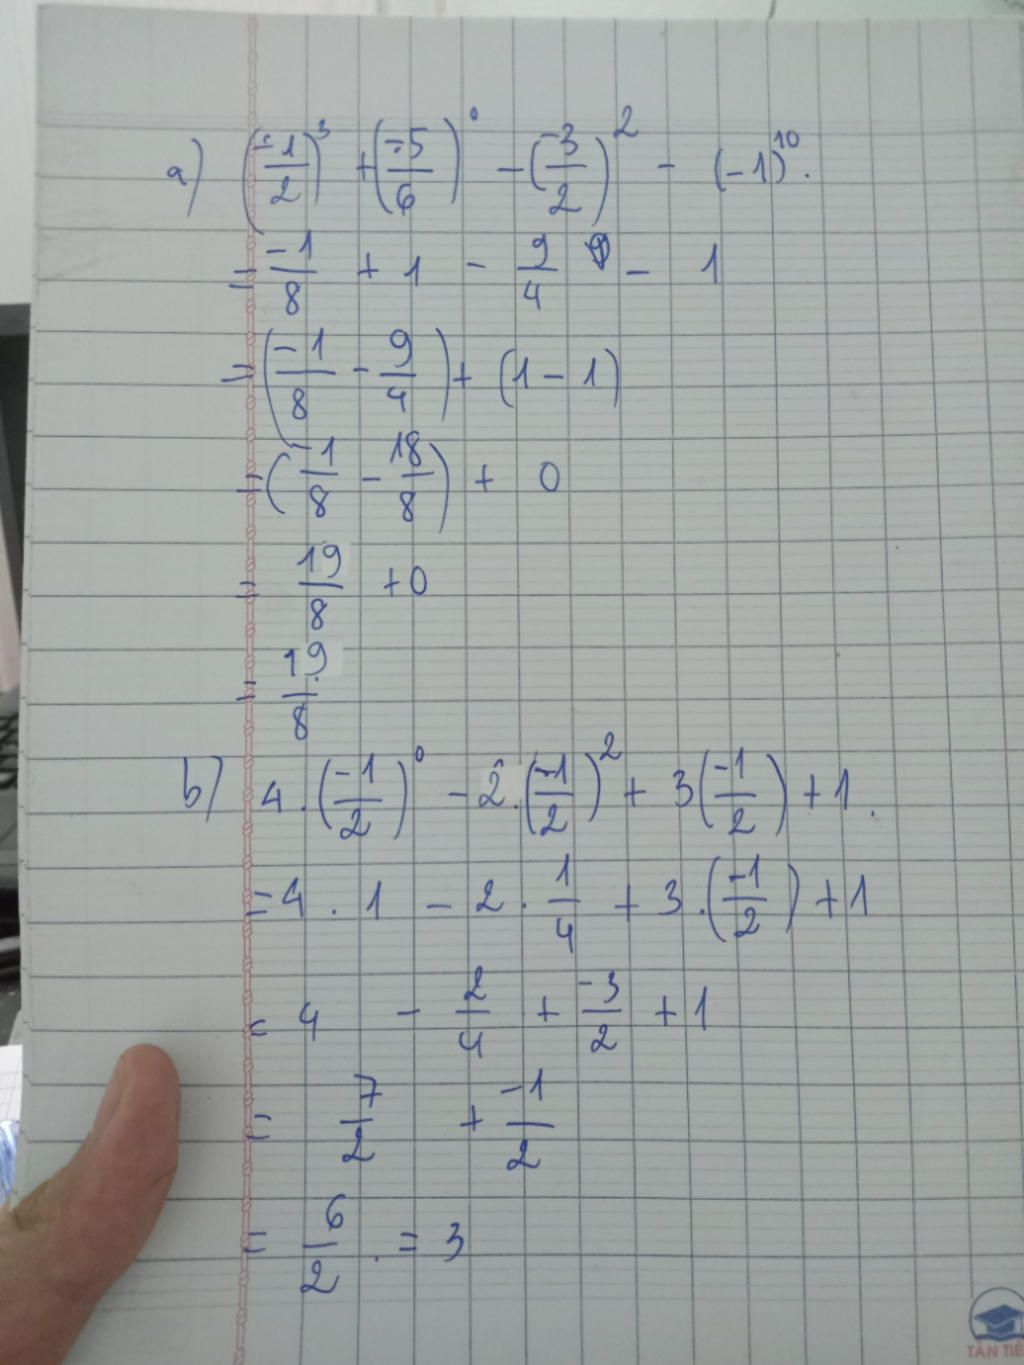 a) (-1/2)³ + (-5/6)⁰ - (-3/2)² - (-1)¹⁰.
= -1/8 + 1 - 9/4 - 1
= (-1/8 - 9/4) + (1 - 1)
= (-1/8 - 18/8) + 0
= 19/8 + 0
= 19/8
b) 4 . (-1/2)⁰ - 2 . (-1/2)² + 3 (-1/2) + 1.
= 4 . 1 - 2 . 1/4 + 3 . (-1/2) + 1
= 4 - 2/4 + -3/2 + 1
= 7/2 + -1/2
= 6/2 . = 3